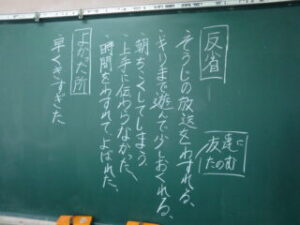 反省
友達に
たのむ
・そうじの放送をわすれる、
・ぎりまで遊んで少しおくれる、
・朝ちこくしてしまう、
・上手に伝わらなかった、
・時間をわすれてよばれた、
よかった所
早くきすぎた